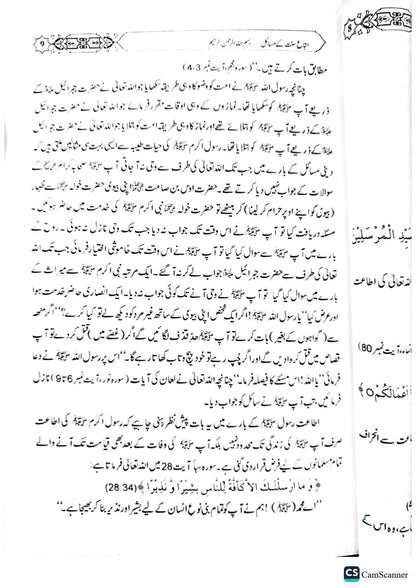 اتباع سنت کے مسائل    بسم اللہ الرحمن الرحیم
9
مطابق بات کرتے ہیں۔'' (سورہ نجم، آیت نمبر 3-4)
چنانچہ رسول اللہ ﷺ نے امت کو وضو کا وہی طریقہ سکھایا جو اللہ تعالیٰ نے حضرت جبرائیل علیہ السلام کے
ذریعے آپ ﷺ کو سکھایا تھا۔ نمازوں کے وہی اوقات مقرر فرمائے جو اللہ تعالیٰ نے حضرت جبرائیل
علیہ السلام کے ذریعے آپ ﷺ کو بتلائے تھے اور نماز کا وہی طریقہ امت کو بتلایا جو اللہ تعالیٰ نے حضرت جبرائیل علیہ السلام کے
ذریعے آپ ﷺ کو بتلایا تھا۔ رسول اکرم ﷺ کی حیات طیبہ سے ایسی بہت سی مثالیں ملتی ہیں کہ
دینی مسائل کے بارے میں جب تک اللہ تعالیٰ کی طرف سے وحی نہ آ جاتی آپ ﷺ صحابہ کرام کے
سوالات کے جواب نہیں دیا کرتے تھے۔ حضرت اوس بن صامت اپنی بیوی حضرت خولہ سے ظہار
(بیوی کو اپنے اوپر حرام کر لینا) کر بیٹھے تو حضرت خولہ نبی اکرم ﷺ کی خدمت میں حاضر ہوئیں۔
مسئلہ دریافت کیا تو آپ ﷺ نے اس وقت تک جواب نہ دیا جب تک وحی نازل نہ ہوئی۔ روح کے
بارے میں آپ ﷺ سے سوال کیا گیا تو آپ ﷺ نے اس وقت تک خاموشی اختیار فرمائی جب تک اللہ
تعالیٰ کی طرف سے حضرت جبرائیل علیہ السلام جواب لے کر نہ آ گئے۔ ایک مرتبہ نبی اکرم ﷺ سے میراث کے
بارے میں سوال کیا گیا تو آپ ﷺ نے وحی آنے تک کوئی جواب نہ دیا۔ ایک انصاری حاضر خدمت ہوا
اور عرض کیا ''یا رسول اللہ ﷺ! اگر ایک شخص اپنی بیوی کے ساتھ غیر مرد کو دیکھ لے تو کیا کرے؟'' اگر منہ
سے (گواہوں کے بغیر) بات کرے تو آپ ﷺ حد قذف لگائیں گے اگر (غصے میں) قتل کر دے تو آپ
قصاص میں قتل کروا دیں گے اور اگر چپ رہے تو خود پیچ و تاب کھاتا رہے گا۔'' اس پر رسول اللہ ﷺ نے دعا
فرمائی ''یا اللہ! اس مسئلے کا فیصلہ فرما۔'' چنانچہ اللہ تعالیٰ نے لعان کی آیات (سورہ نور، آیت نمبر 6 تا 9) نازل
فرمائیں، تب آپ ﷺ نے سائل کو جواب دیا۔
اطاعت رسول ﷺ کے بارے میں یہ بات پیش نظر رہنی چاہئے کہ رسول اکرم ﷺ کی اطاعت
صرف آپ ﷺ کی زندگی تک محدود نہیں بلکہ آپ ﷺ کی وفات کے بعد بھی قیامت تک آنے والے
تمام مسلمانوں کے لیے فرض قرار دی گئی ہے۔ سورہ سبا آیت 28 میں اللہ تعالیٰ فرماتا ہے:
﴿ وَ مَا اَرْسَلْنٰكَ اِلَّا كَآفَّةً لِّلنَّاسِ بَشِيْرًا وَّ نَذِيْرًا ﴾ (28:34)
''اے محمد (ﷺ) ! ہم نے آپ کو تمام بنی نوع انسان کے لیے بشیر اور نذیر بنا کر بھیجا ہے۔''
8
سَيِّدِ الْمُرْسَلِيْنَ
اللہ تعالیٰ کی اطاعت
آیت نمبر 80)
اَعْمَالَكُمْ ٥ ﴾
سے انحراف
ہے، وہ اس کے
CS CamScanner